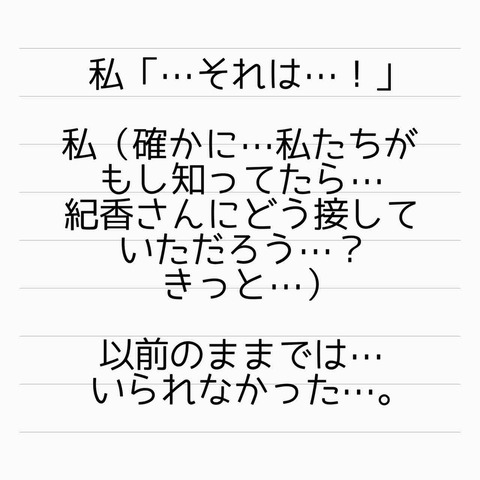 私「…それは…！」
私（確かに…私たちが
もし知ってたら…
紀香さんにどう接して
いただろう…？
きっと…）
以前のままでは…
いられなかった…。